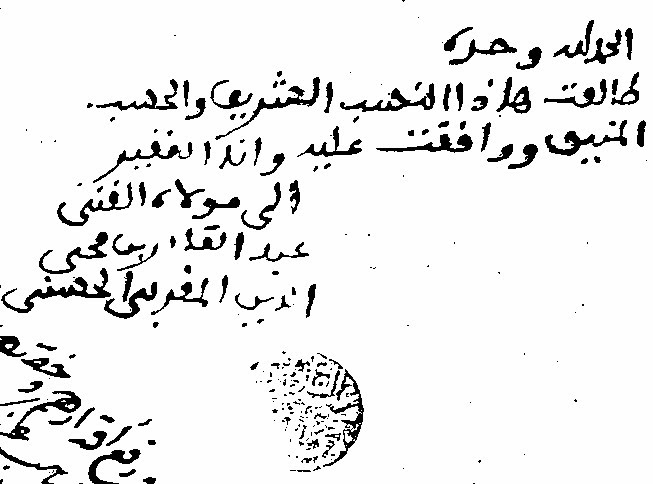 الحمد لله وحده
طالعت هاذا النسب الشريف والحسب
المنيف ووافقت عليه وانا الفقير
الى مولاه الغني
عبد القادر بن محيي
الدين المغربي الحسني